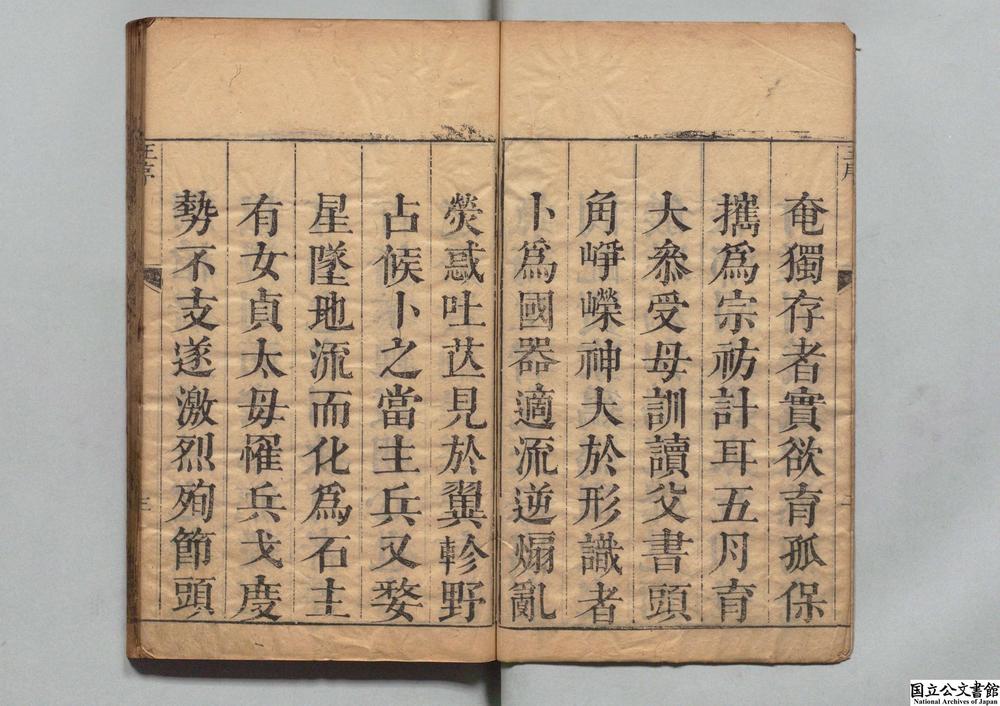 奄獨存者實欲育孤保
攜爲宗祊計耳五月育
大參受母訓讀父書頭
角崢嶸神大於形識者
卜爲國器適流逆煽亂
熒惑吐芒見於翼軫野
占候卜之當主兵又婺
星墜地流而化爲石主
有女貞太母懼兵戈度
勢不支遂激烈殉節頭
王序
三
国立公文書館
National Archives of Japan